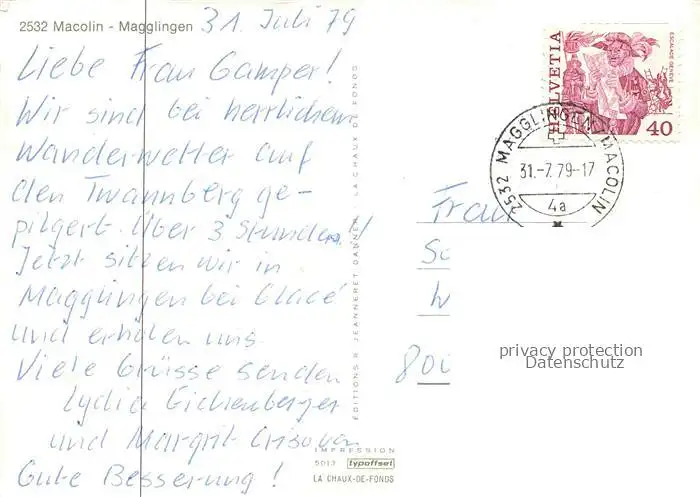 2532 Macolin - Magglingen
31. Juli 79
Liebe Frau Gamper!
Wir sind bei herrlichem
Wanderwetter auf
den Twannberg ge-
pilgert. Über 3 Stunden!
Jetzt sitzen wir in
Magglingen bei Glacé
und erholen uns.
Viele Grüsse senden
Lydia Eichenberger
und Margrit
Gute Besserung!
EDITIONS R. JEANNERET DANNER LA CHAUX-DE-FONDS
IMPRESSION
5013 typoffset
LA CHAUX-DE-FONDS
HELVETIA
ESCALADE GENÈVE
40
2532 MAGGLINGEN MACOLIN
31.-7.79-17
4a
Frau
800
privacy protection
Datenschutz